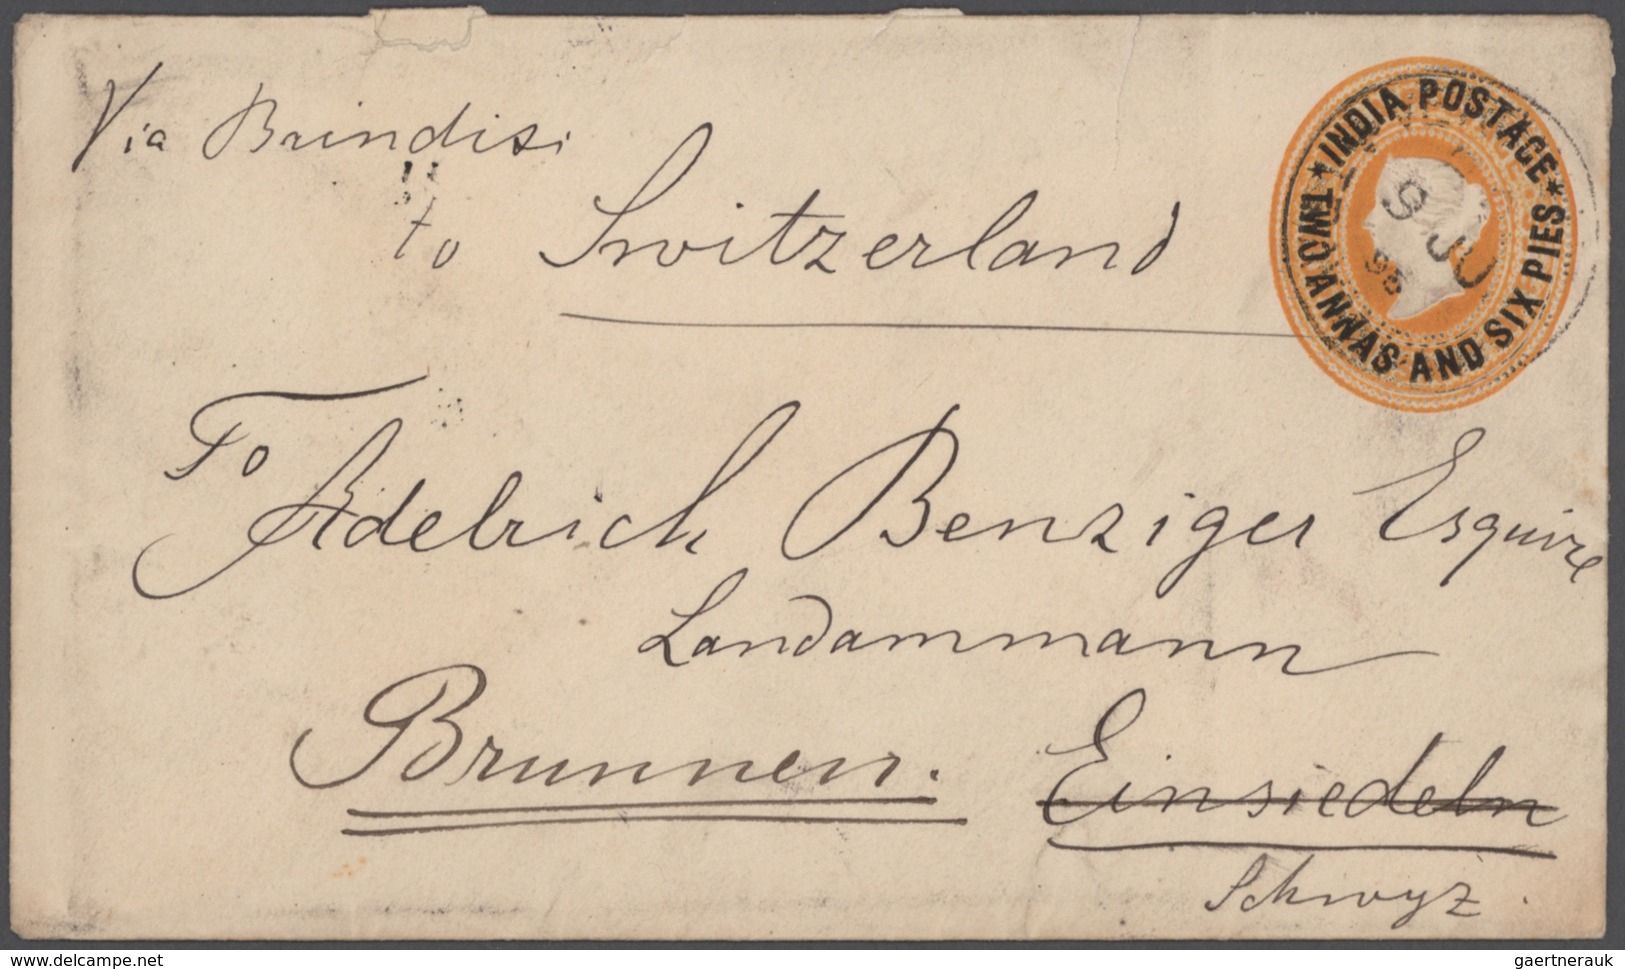 Via Brindisi
to Switzerland
★ INDIA POSTAGE ★
TWO ANNAS AND SIX PIES
9 JU
98
To
Adelrich Benziger Esquire
Landammann
Brunnen. Einsiedeln
Schwyz.
www.delcampe.net
gaertnerauk